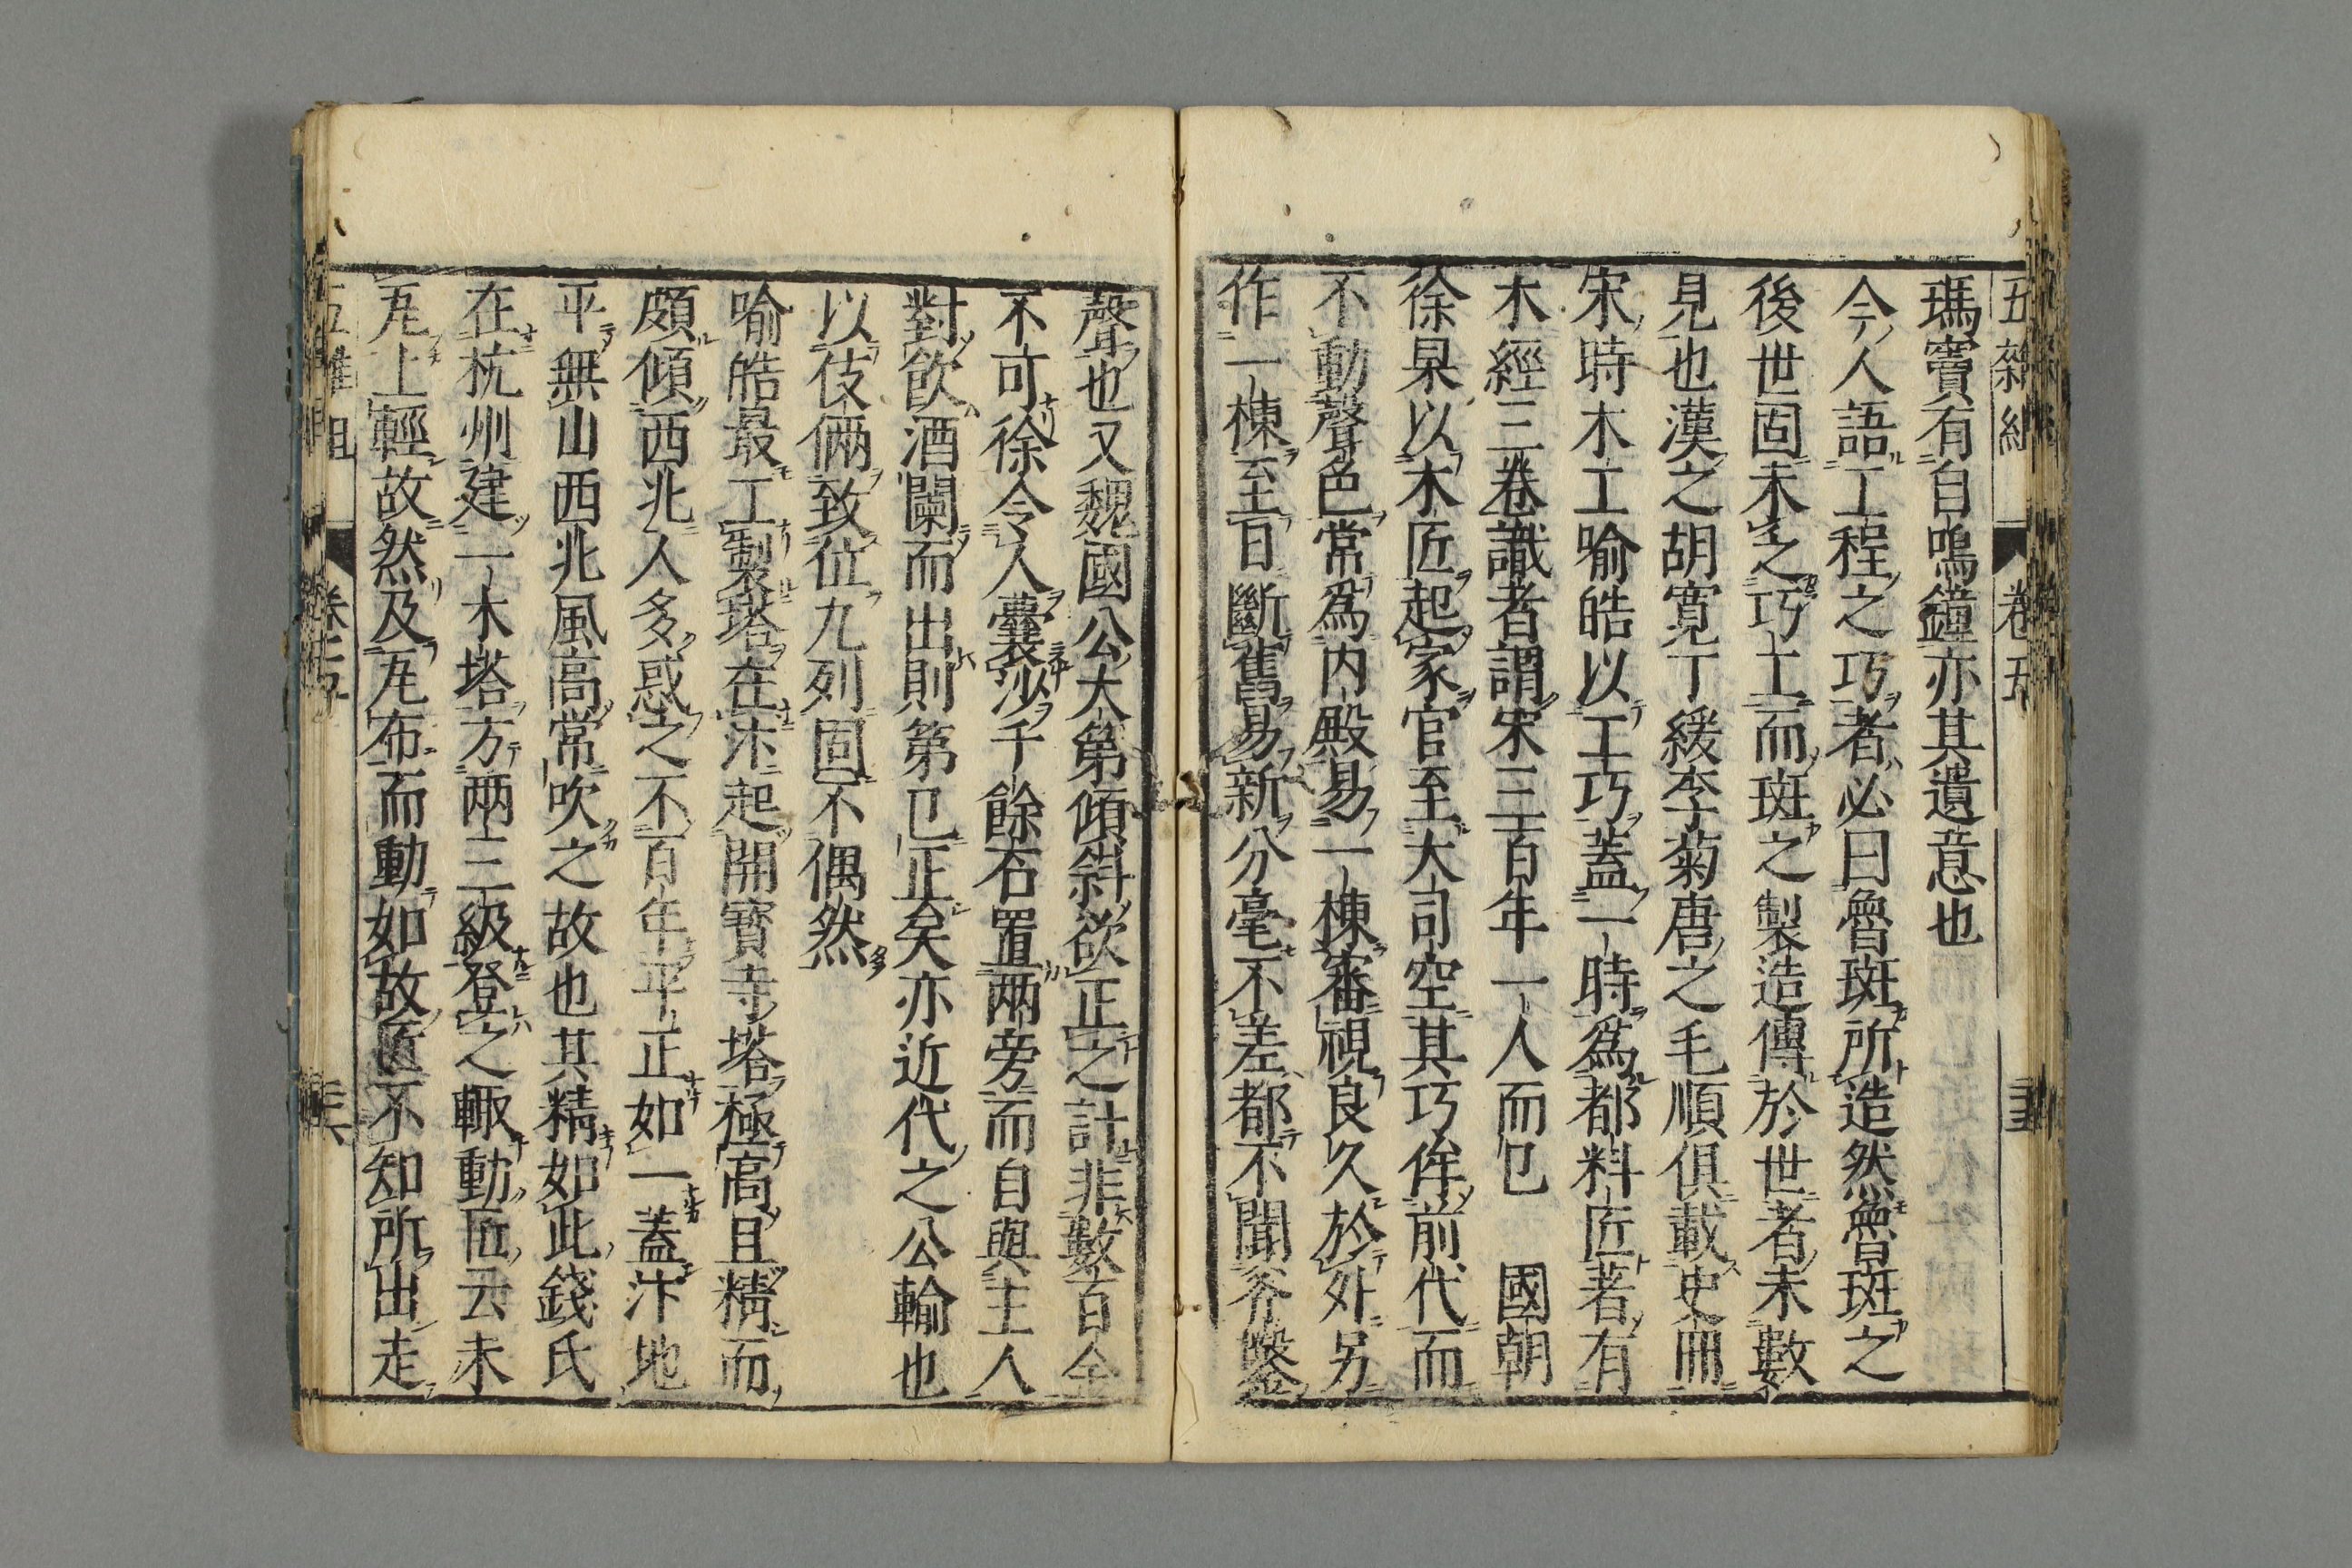 五雜組 卷五
瑪竇有自鳴鐘亦其遺意也
今人語工程之巧者必曰魯斑所造然魯斑之
後世固未乏巧工而斑之製造傳於世者未數
見也漢之胡寬丁緩李菊唐之毛順俱載史冊
宋時木工喻皓以工巧蓋一時爲都料匠著有
木經三卷識者謂宋三百年一人而已 國朝
徐杲以木匠起家官至大司空其巧侔前代而
不動聲色常爲内殿易一棟審視良久於外另
作一棟至日斷舊易新分毫不差都不聞斧鑿
聲也又魏國公大第傾斜欲正之計非數百金
不可徐令人囊沙千餘石置兩旁而自與主人
對飲酒闌而出則第已正矣亦近代之公輸也
以伎倆致位九列固不偶然
喻皓最工製塔在汴起開寶寺塔極高且精而
頗傾西北人多惑之不百年平正如一蓋汴地
平無山西北風高常吹之故也其精如此錢氏
在杭州建一木塔方兩三級登之輒動匠云未
瓦上輕故然及瓦布而動如故匠不知所出走
五雜組 卷五 三六